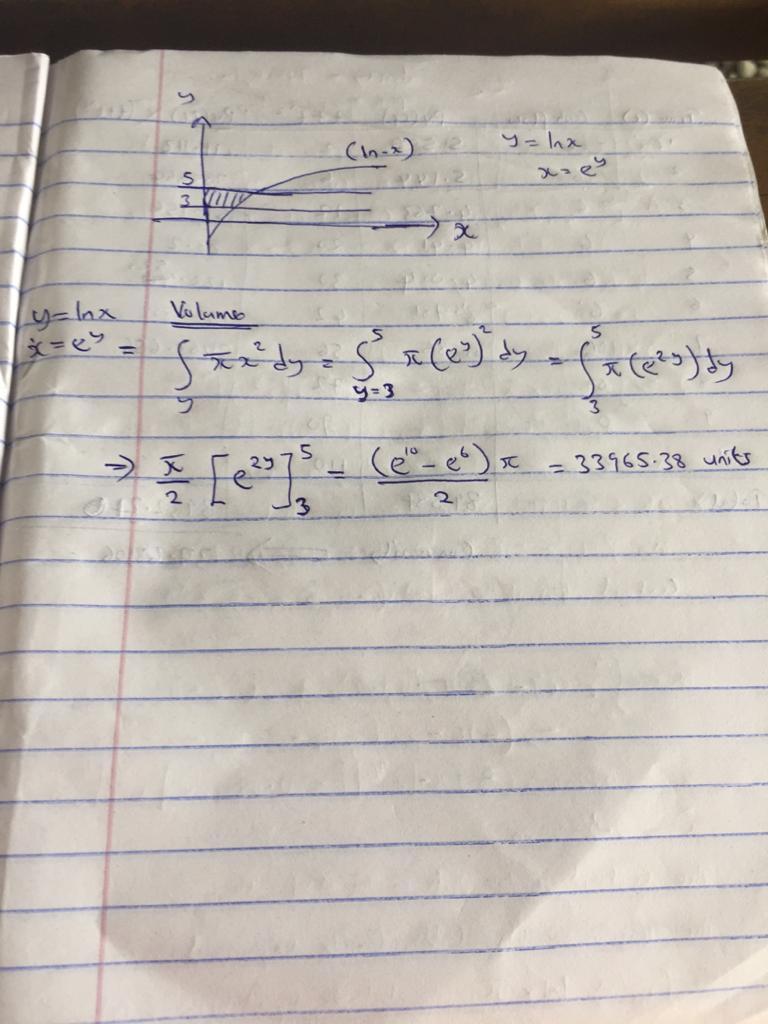 y
(ln x)
y = lnx
x = e^y
5
3
x
y = lnx Volume
x = e^y = ∫_y πx² dy = ∫_{y=3}^5 π(e^y)² dy = ∫_3^5 π(e^{2y}) dy
⇒ π/2 [e^{2y}]_3^5 = (e^{10} - e^6)/2 π = 33965.38 units